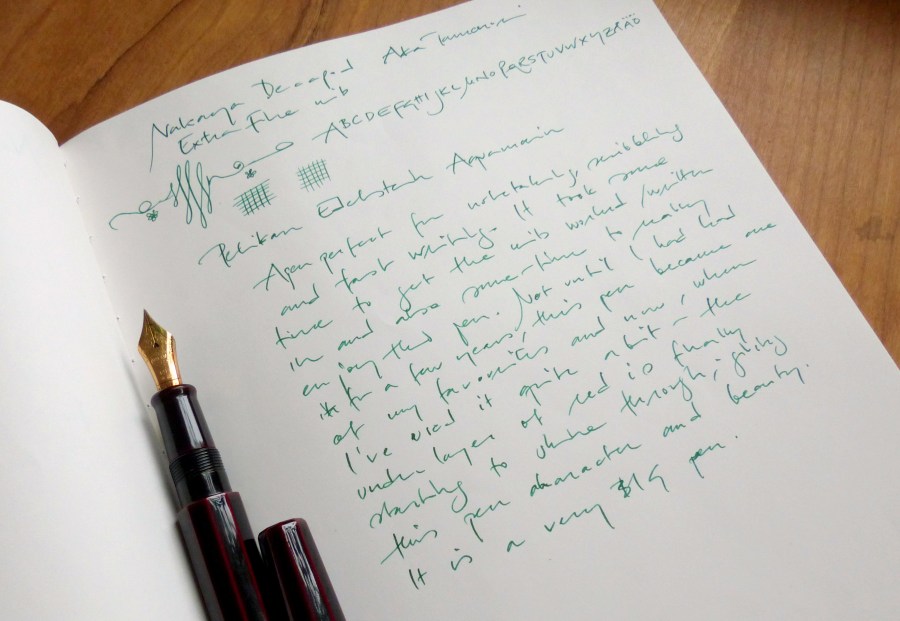 Nakaya Decapod Aka Tamenuri
Extra Fine nib ABCDEFGHIJKLMNOPQRSTUVWXYZÅÄÖ
Pelikan Edelstein Aquamarin
Again perfect for notetaking, scribbling
and fast writing. It took some
time to get the nib worked/written
in and also some time to really
enjoy this pen. Not until I had had
it for a few years, this pen became one
of my favorites and now, when
I've used it quite a bit – the
under layer of red is finally
starting to shine through, giving
this pen character and beauty.
It is a very BIG pen.